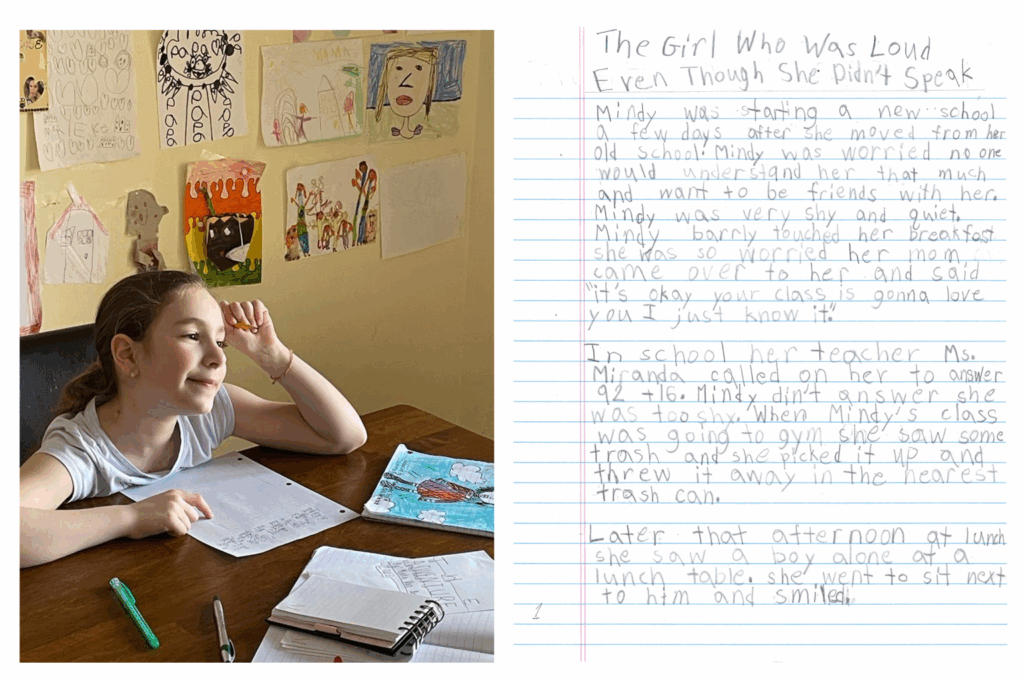 MAMA
The Girl Who Was Loud
Even Though She Didn't Speak
Mindy was starting a new school
a few days after she moved from her
old school. Mindy was worried no one
would understand her that much
and want to be friends with her.
Mindy was very shy and quiet.
Mindy barrly touched her breakfast
she was so worried her mom,
came over to her and said
"it's okay your class is gonna love
you I just know it."
In school her teacher Ms.
Miranda called on her to answer
92 +16. Mindy din't answer she
was too shy. When Mindy's class
was going to gym she saw some
trash and she picked it up and
threw it away in the nearest
trash can.
Later that afternoon at lunch
she saw a boy alone at a
lunch table. she went to sit next
to him and smiled.
1